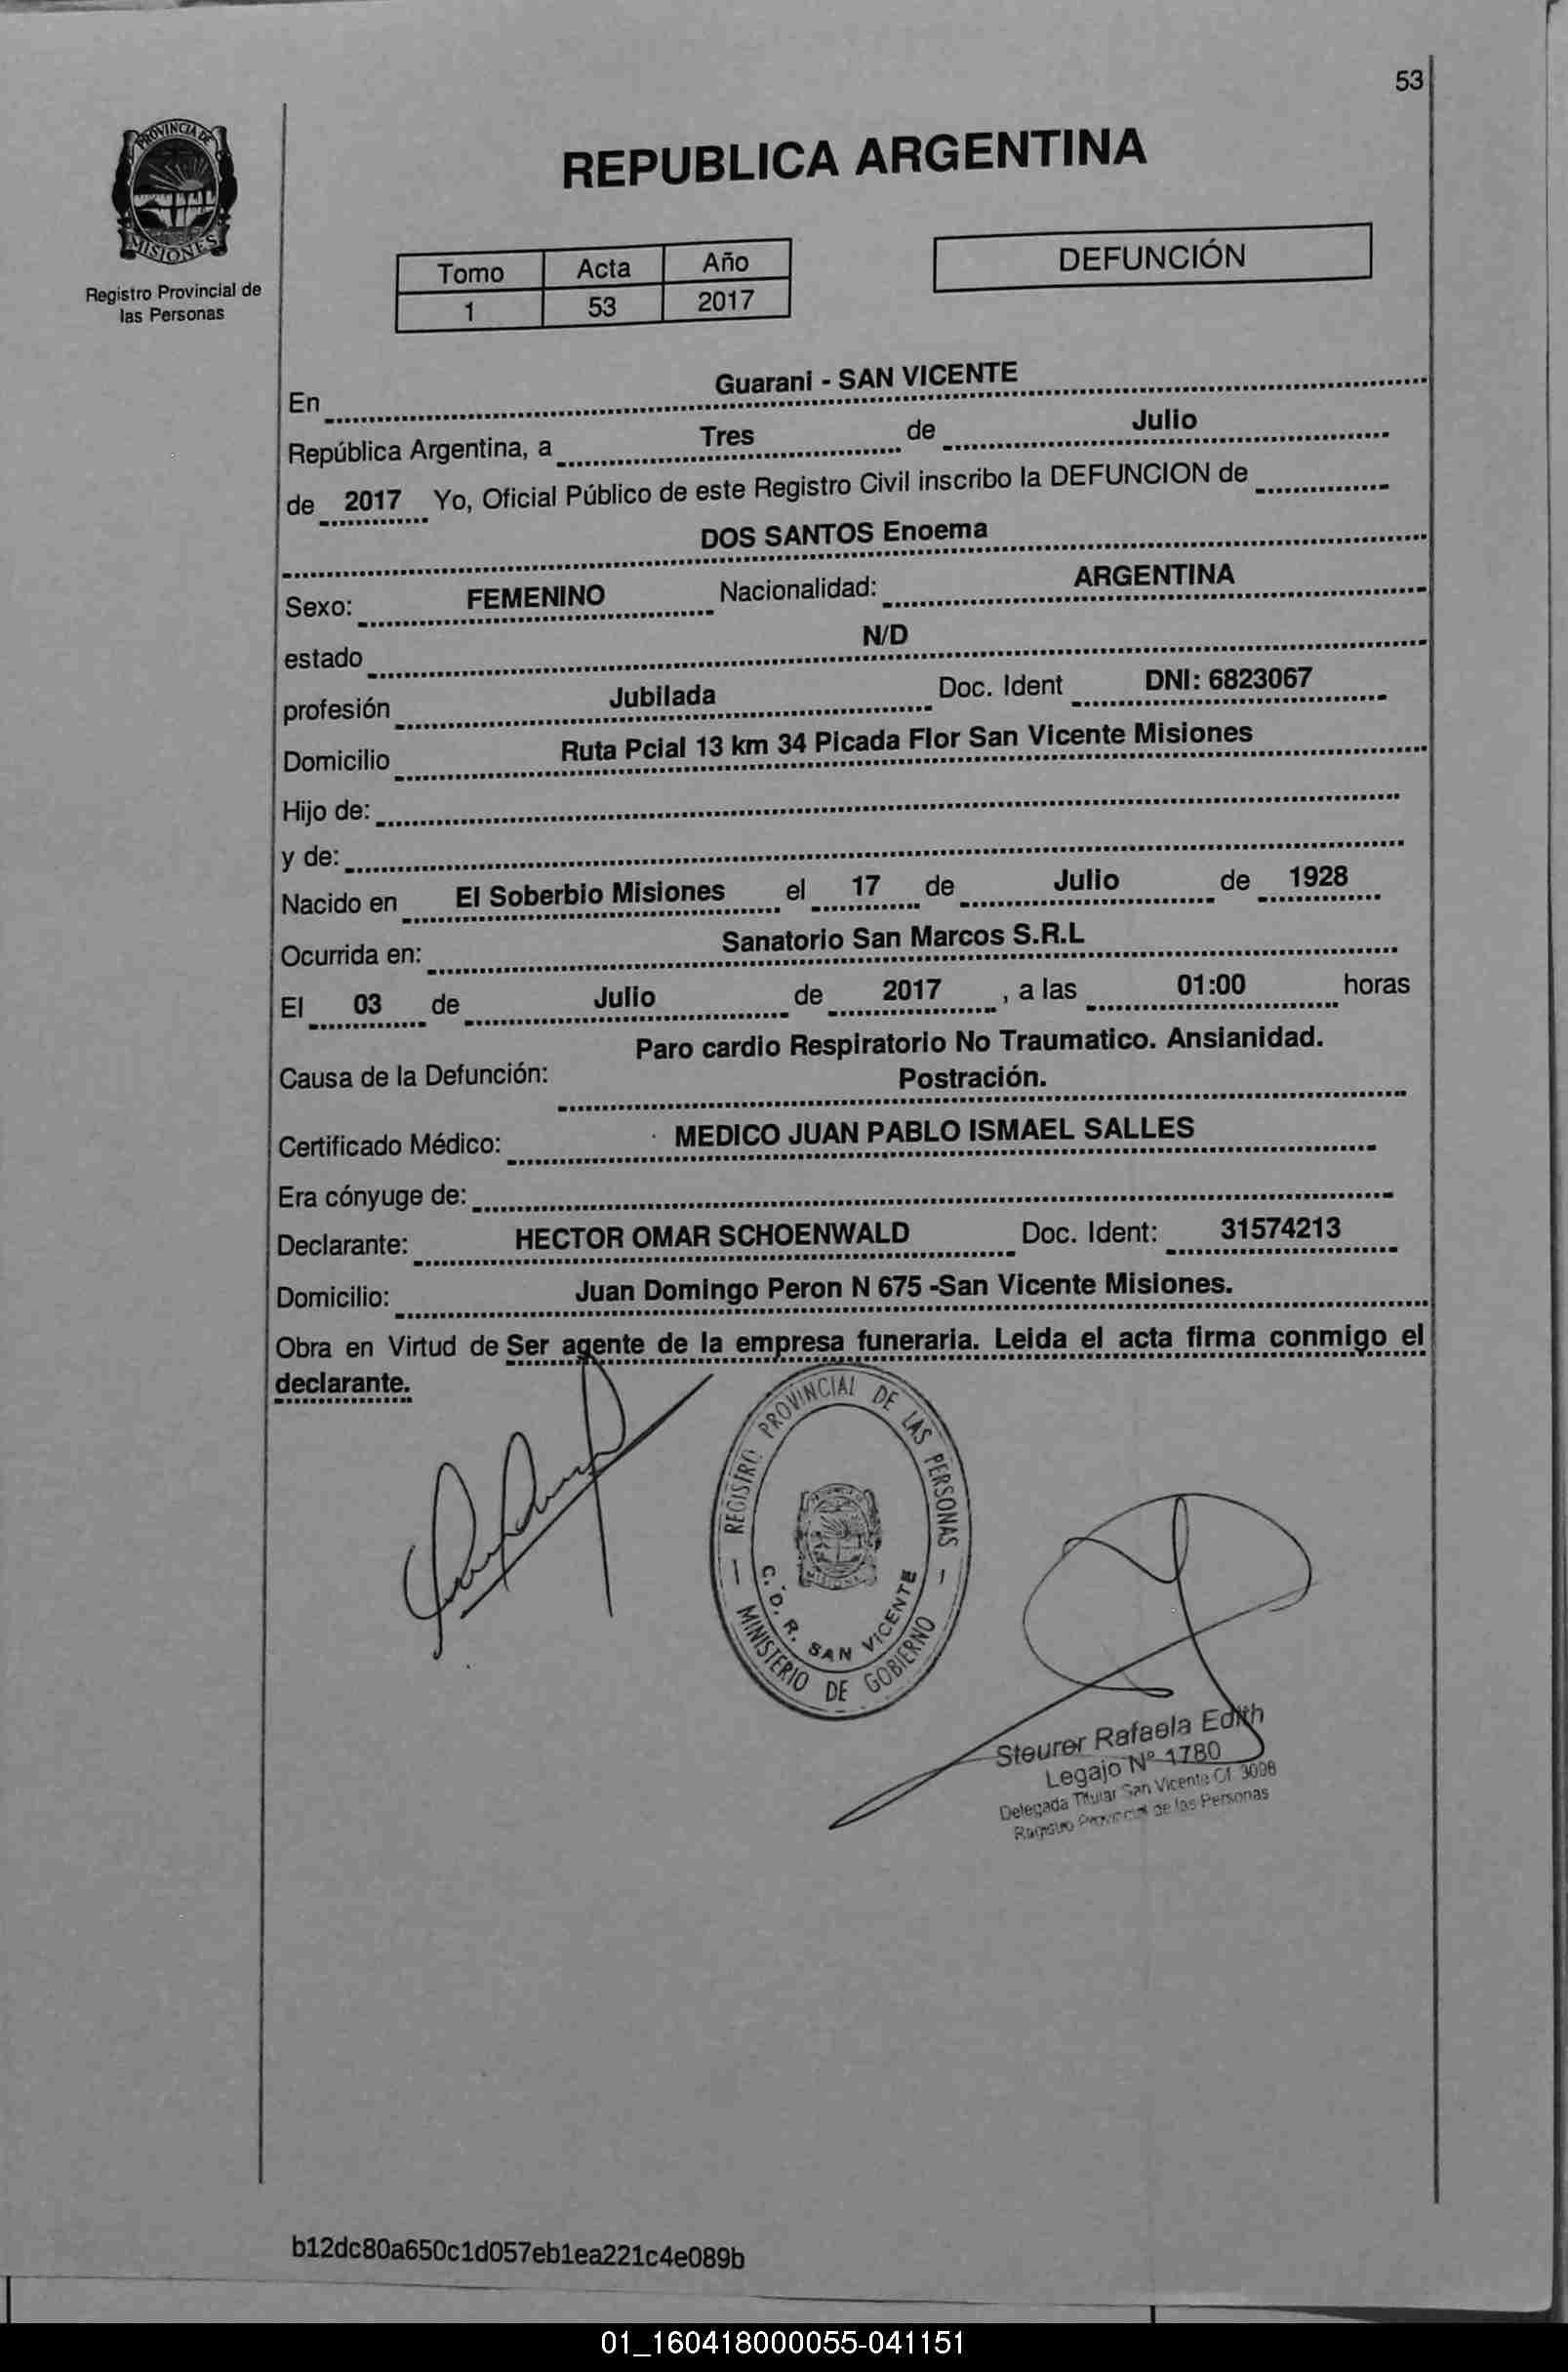 53
PROVINCIA DE
MISIONES
Registro Provincial de
las Personas
REPUBLICA ARGENTINA
Tomo Acta Año
1 53 2017
DEFUNCIÓN
En Guarani - SAN VICENTE
República Argentina, a Tres de Julio
de 2017 Yo, Oficial Público de este Registro Civil inscribo la DEFUNCION de
DOS SANTOS Enoema
Sexo: FEMENINO Nacionalidad: ARGENTINA
estado N/D
profesión Jubilada Doc. Ident DNI: 6823067
Domicilio Ruta Pcial 13 km 34 Picada Flor San Vicente Misiones
Hijo de:
y de:
Nacido en El Soberbio Misiones el 17 de Julio de 1928
Ocurrida en: Sanatorio San Marcos S.R.L
El 03 de Julio de 2017 , a las 01:00 horas
Paro cardio Respiratorio No Traumatico. Ansianidad.
Causa de la Defunción: Postración.
Certificado Médico: MEDICO JUAN PABLO ISMAEL SALLES
Era cónyuge de:
Declarante: HECTOR OMAR SCHOENWALD Doc. Ident: 31574213
Domicilio: Juan Domingo Peron N 675 -San Vicente Misiones.
Obra en Virtud de Ser agente de la empresa funeraria. Leida el acta firma conmigo el
declarante.
REGISTRO PROVINCIAL DE LAS PERSONAS
C. D. R. SAN VICENTE
MINISTERIO DE GOBIERNO
Steurer Rafaela Edith
Legajo Nº 1780
Delegada Titular San Vicente Of 3098
Registro Provincial de las Personas
b12dc80a650c1d057eb1ea221c4e089b
01_160418000055-041151